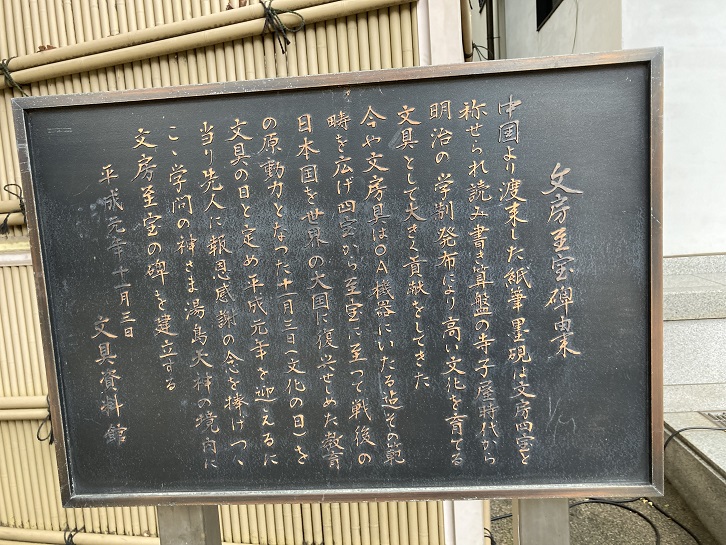 文房至宝碑由来
中国より渡来した紙筆墨硯は文房四宝と
称せられ読み書き算盤の寺子屋時代から
明治の学制発布により高い文化を育てる
文具として大きく貢献をしてきた
今や文房具はOA機器にいたる迄その範
時を広げ四宝から至宝に至つて戦後の
日本国を世界の大国に復興せしめた教育
の原動力となつた十一月三日(文化の日)を
文具の日と定め平成元年を迎えるに
当り先人に報恩感謝の念を捧げつゝ
こゝ学問の神さま湯島天神の境内に
文房至宝の碑を建立する
平成元年十一月三日
文具資料館